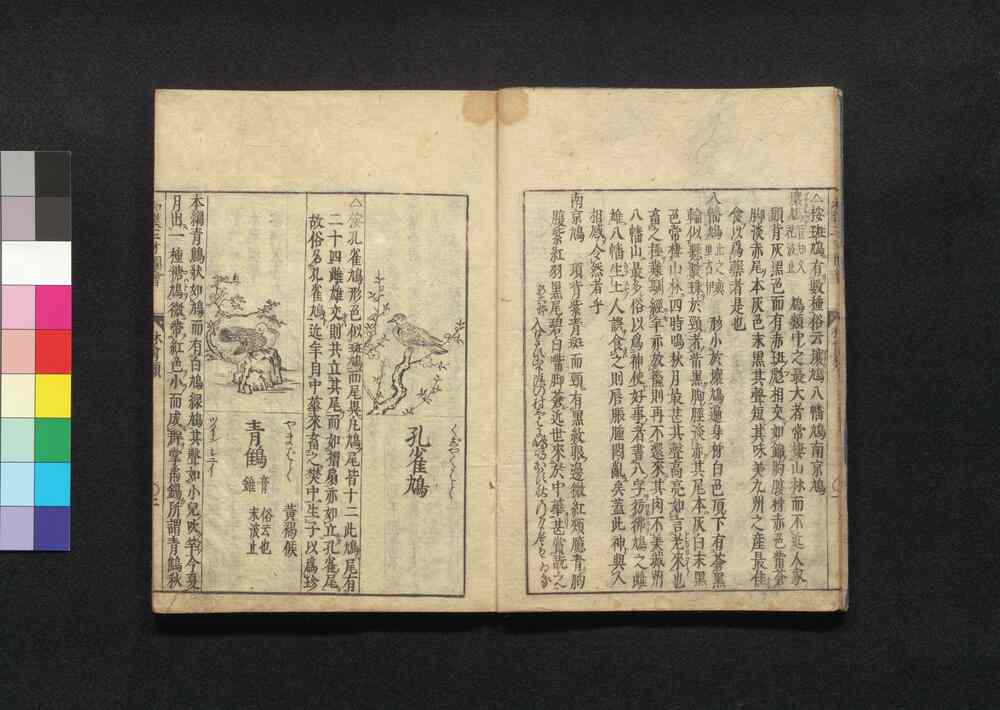 △按斑鳩有數種俗云壤鳩八幡鳩南京鳩
壤鳩
鳩類中之最大者常棲山林而不近人家
頭背灰黑色而有赤斑彪相交如錦胸腹柹赤色觜蒼
脚淡赤尾本灰色末黑其聲短其味美九州之産最佳
食以爲藥者是也
八幡鳩
形小於壤鳩遍身灰白色頂下有蒼黑
輪似懸數珠於頸者觜黑脚脛淡赤其尾本灰白末黑
色常棲山林四時鳴秋月最甚其聲高亮如言老來也
畜之極難馴經年亦放籠則再不還來其肉不美城州
八幡山最多俗以爲神使好事者書八字彷彿鳩之雌
雄八幡生土人誤食之則唇脹腫悶亂矣蓋此神與人
相感令然者乎
南京鳩
項背紫青斑而頸有黑紋眼邊微紅頬臆青胸
腹紫紅羽黑尾碧白觜脚蒼近世來於中華甚賞翫之
くじやくばと
孔雀鳩
△按孔雀鳩形色似斑鳩而尾異凡鳩尾皆十二此鳩尾有
二十四雌雄交則共立其尾而如摺扇亦如立孔雀尾
故俗名孔雀鳩近年自中華來畜之樊中生子以爲珍
やまばと
青鶴
黄褐侯
青
錐
俗云也
末波止
ツイン
本綱青鶴狀如鳩而有白鳩綠鳩其聲如小兒吹竽今夏
月出一種糠鳩微帶紅色小而成群掌禹錫所謂青鶴秋